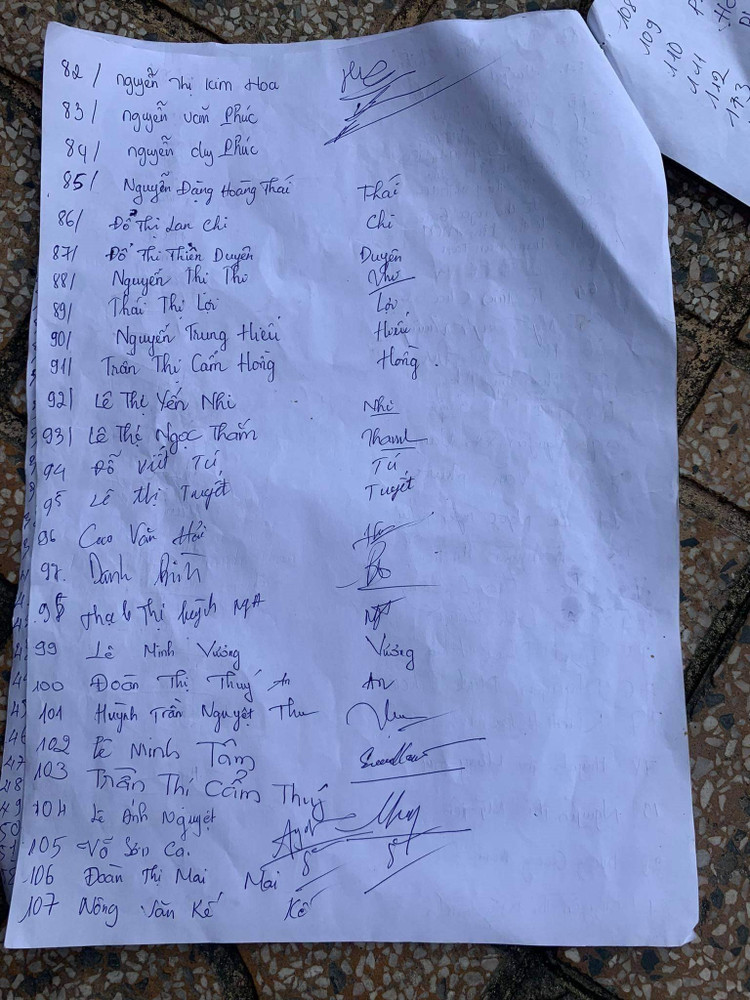 82/ Nguyễn Thị Kim Hoa
83/ nguyễn văn Phúc
84/ nguyễn duy Phúc
85/ Nguyễn Đặng Hoàng Thái Thái
86/ Đỗ Thị Lan Chi Chi
87/ Đỗ Thị Thiên Duyên Duyên
88/ Nguyễn Thị Thơ
89/ Thái Thị Lợi Lợi
90/ Nguyễn Trung Hiếu Hiếu
91/ Trần Thị Cẩm Hồng Hồng.
92/ Lê Thị Yến Nhi Nhi
93/ Lê Thị Ngọc Thắm
94 Đỗ Viết Tú Tú
95 Lê Thị Tuyết Tuyết
96 Cao Văn Hải
97. Danh Bình
98 Thị
99 Lê Minh Vương Vương
100 Đoàn Thị Thuý An An
101 Huỳnh Trần Nguyệt Thu
102 Lê Minh Tâm
103 Trần Thị Cẩm Thuý
104 Lê Ánh Nguyệt
105 Võ Sơn Ca.
106 Đoàn Thị Mai Mai
107 Nông Văn Kế Kế
108
109
110
111
112
113